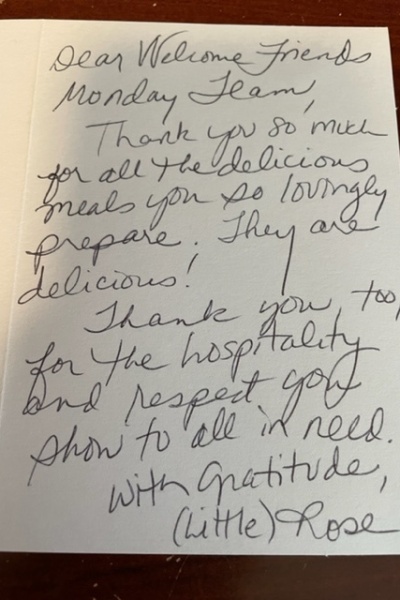 Dear Welcome Friends
Monday Team,
Thank you so much
for all the delicious
meals you so lovingly
prepare. They are
delicious!
Thank you, too,
for the hospitality
and respect you
show to all in need.
With Gratitude,
(Little) Rose